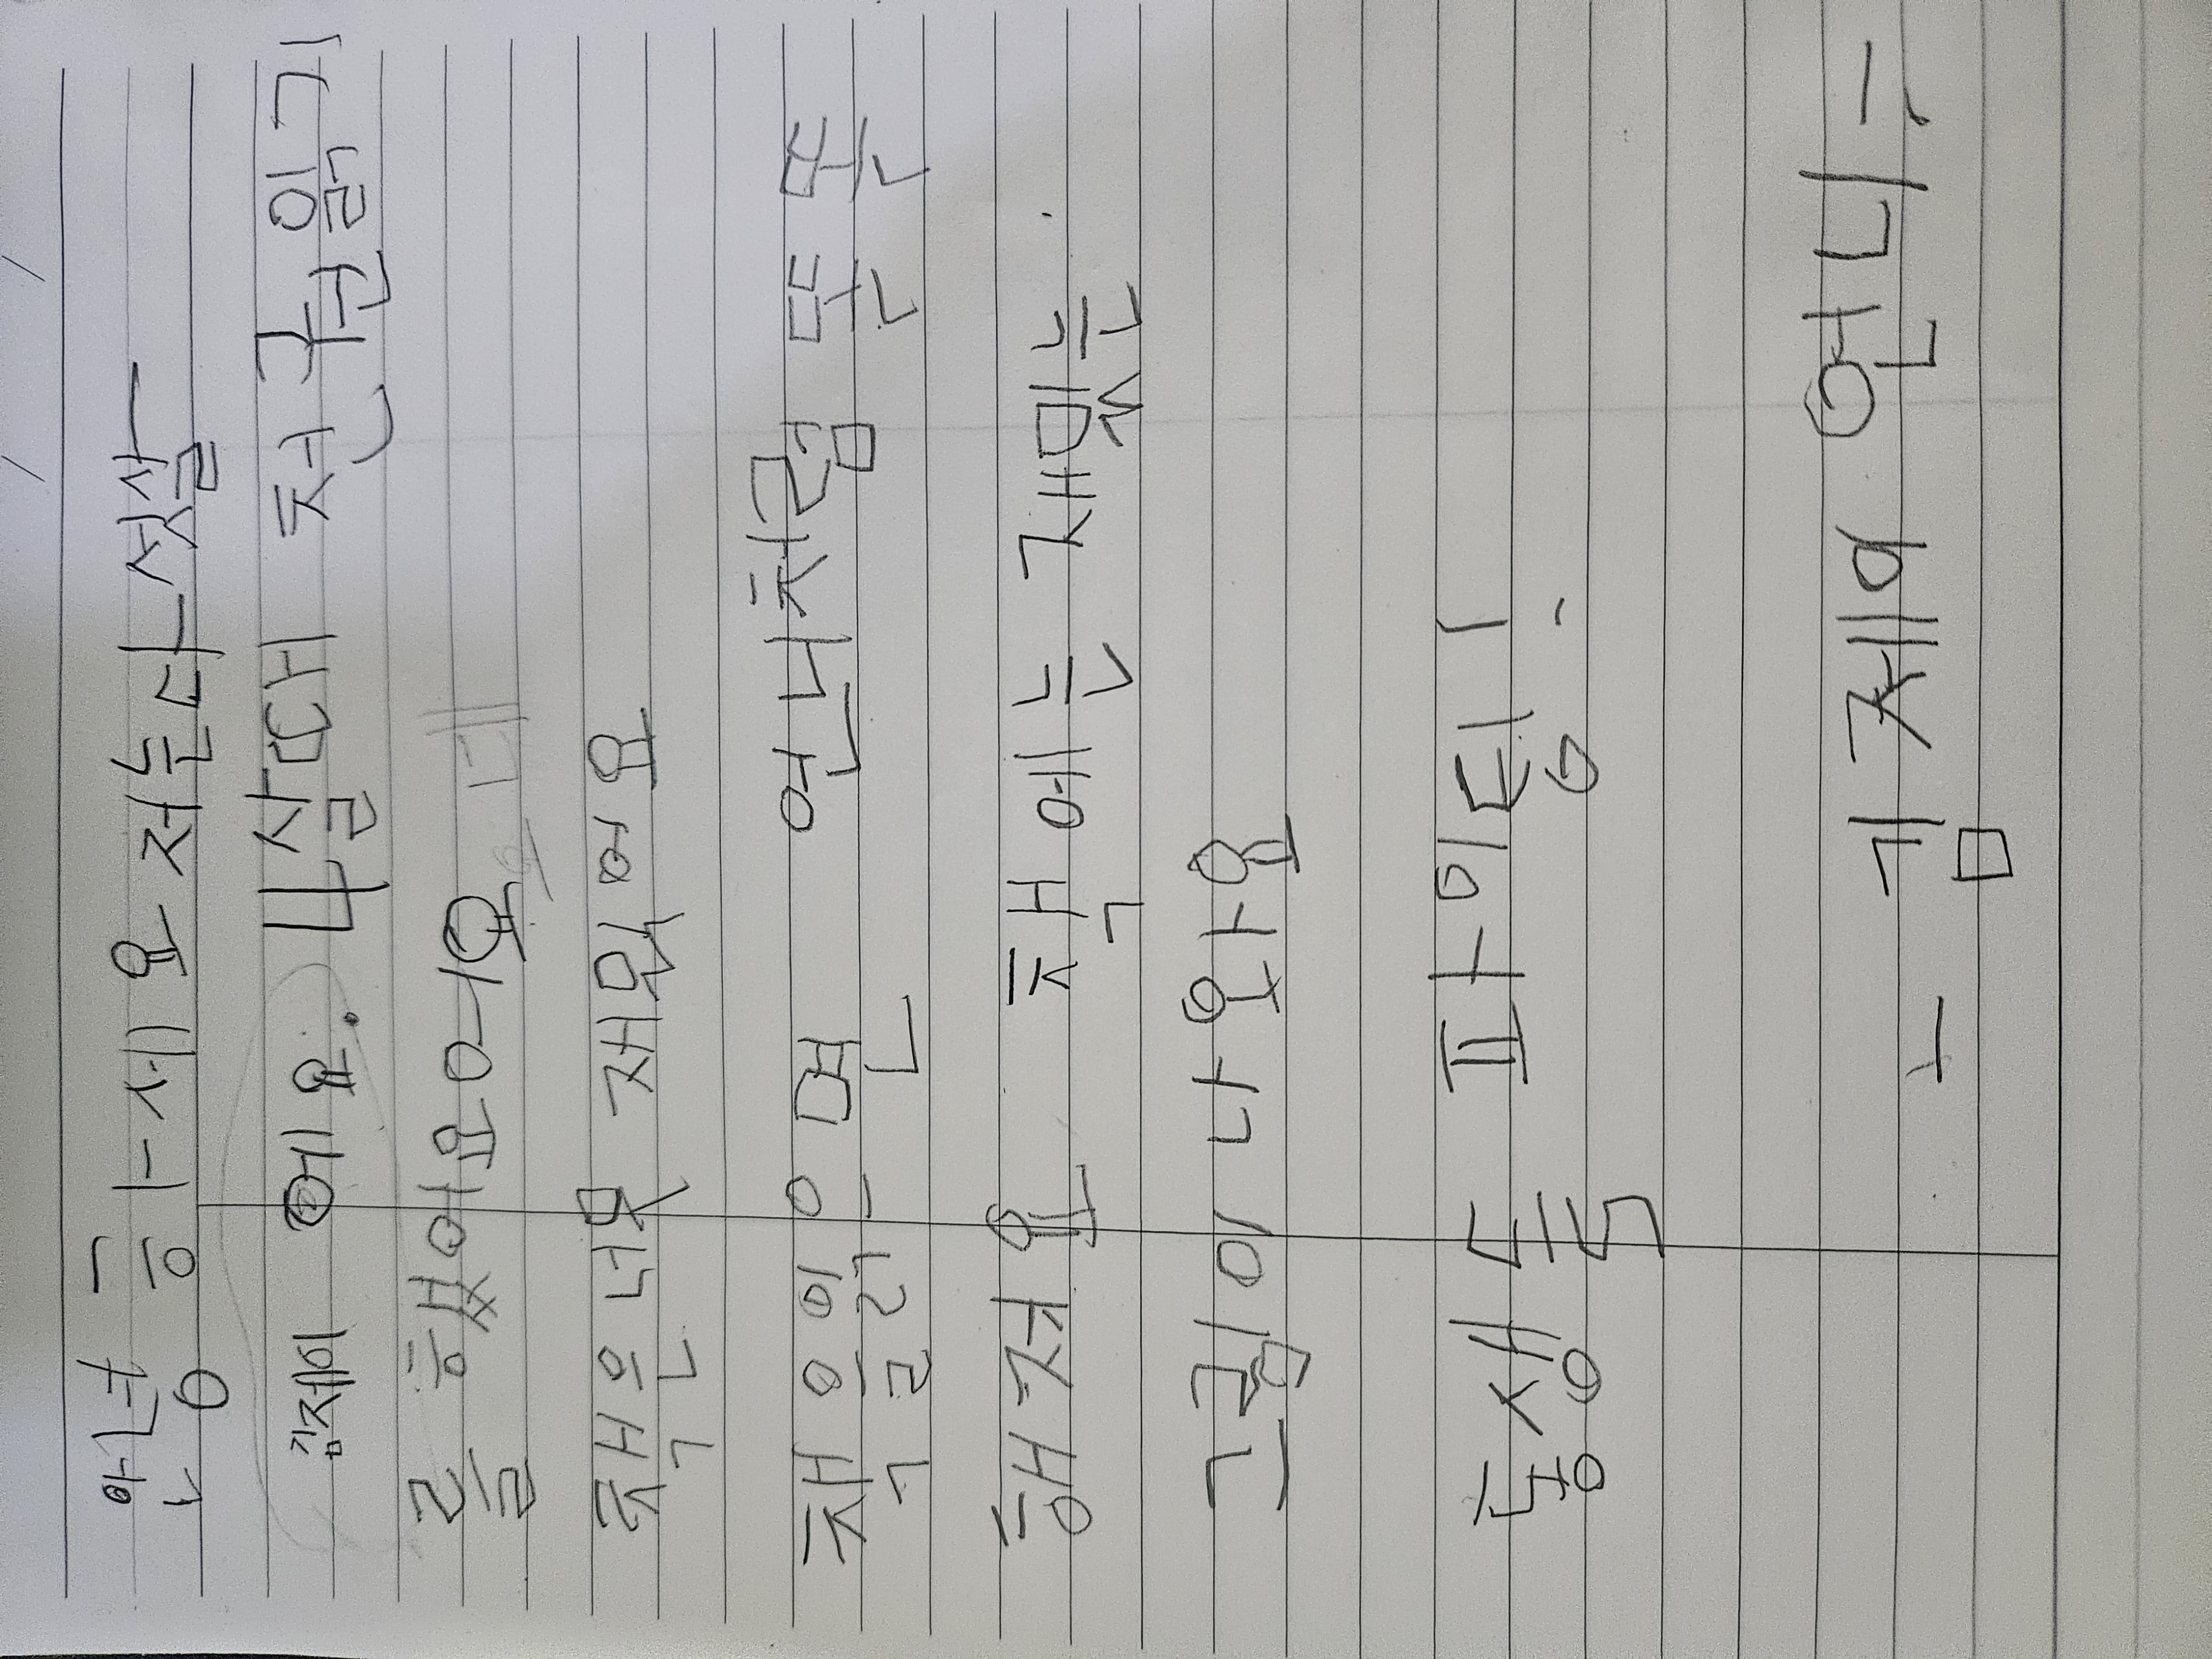 안녕하세요 저는 다섯살
김제이 에요. 4살때 천권읽기
를 했어요어요
책은너무 재밌어요
책을읽은면 언니처럼 똑똑
해져요 책에는 재밌는
그림이 나와요
동생들 파이팅!
- 김제이 언니